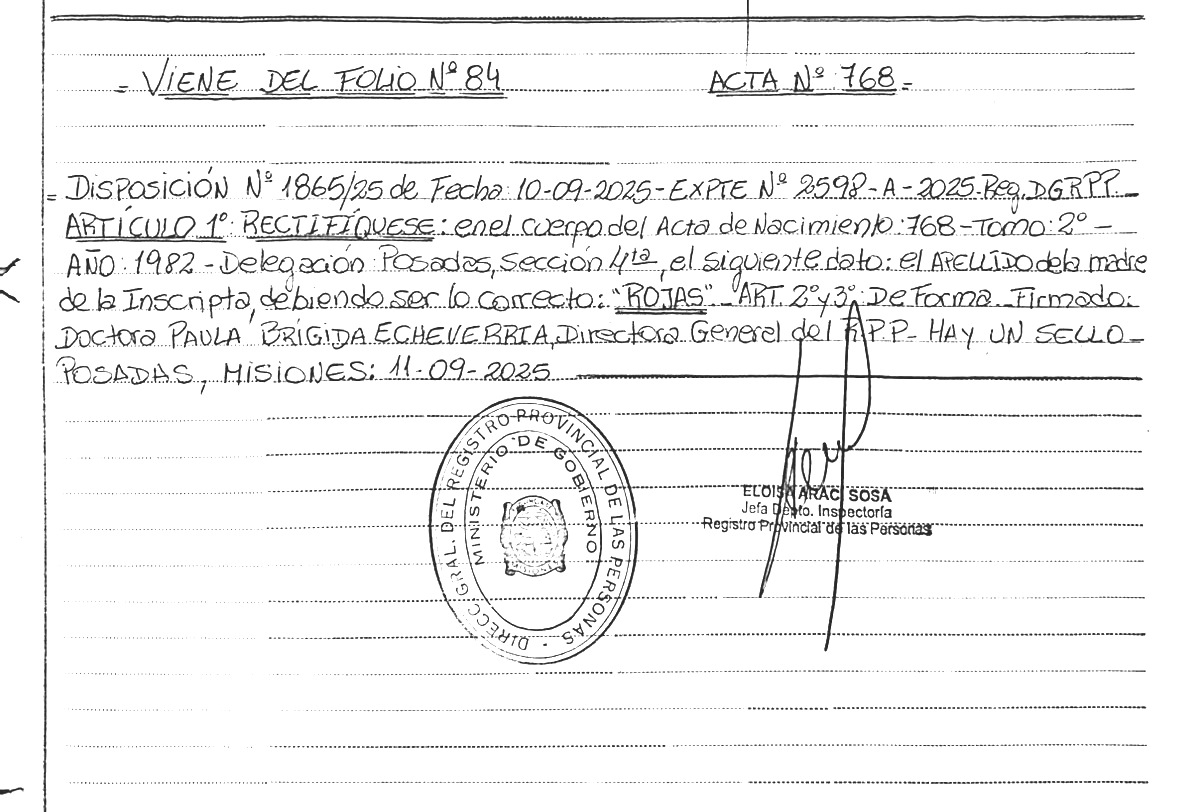 = VIENE DEL FOLIO Nº 84 ACTA Nº 768 =
= DISPOSICIÓN Nº 1865/25 de Fecha: 10-09-2025 - EXPTE Nº 2598-A-2025. Reg. DGRPP. _
ARTÍCULO 1º: RECTIFÍQUESE: en el cuerpo del Acta de Nacimiento: 768 - Tomo: 2º -
AÑO: 1982 - Delegación Posadas, sección 4ta, el siguiente dato: el APELLIDO de la madre
de la Inscripta, debiendo ser lo correcto: "ROJAS" - ART. 2º y 3º: De Forma. Firmado:
Doctora PAULA BRÍGIDA ECHEVERRIA, Directora General del R.P.P - HAY UN SELLO -
POSADAS, MISIONES: 11-09-2025
DIRECC. GRAL. DEL REGISTRO PROVINCIAL DE LAS PERSONAS -
MINISTERIO DE GOBIERNO
ELOISA ARAC. SOSA
Jefa Depto. Inspectoría
Registro Provincial de las Personas